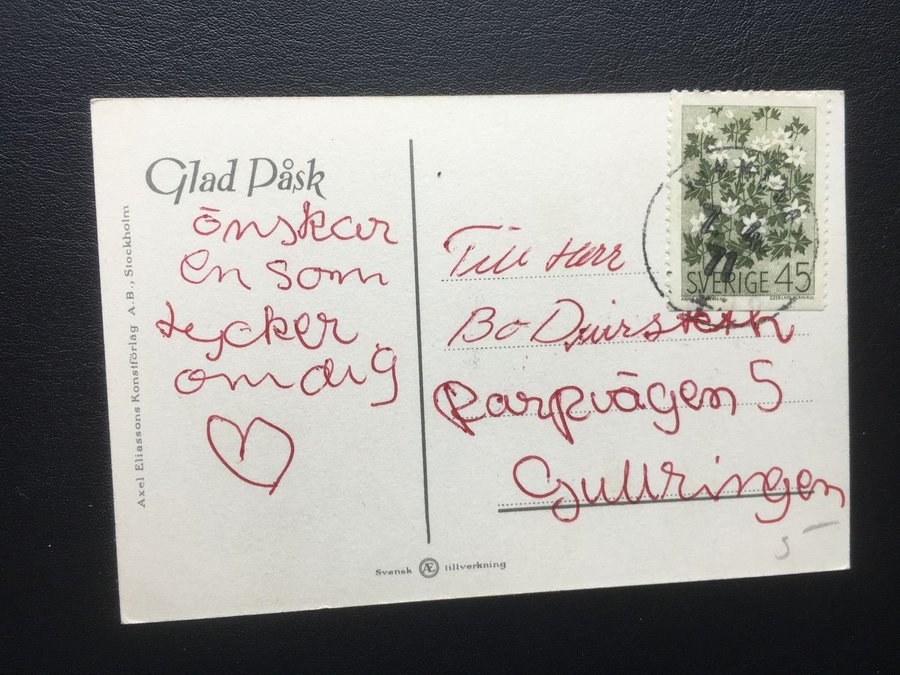 Glad Påsk
önskar
en som
tycker
om dig
Axel Eliassons Konstförlag A.B., Stockholm
SVERIGE 45
Till Herr
Bo
5
Gullringen
Svensk Æ tillverkning
5